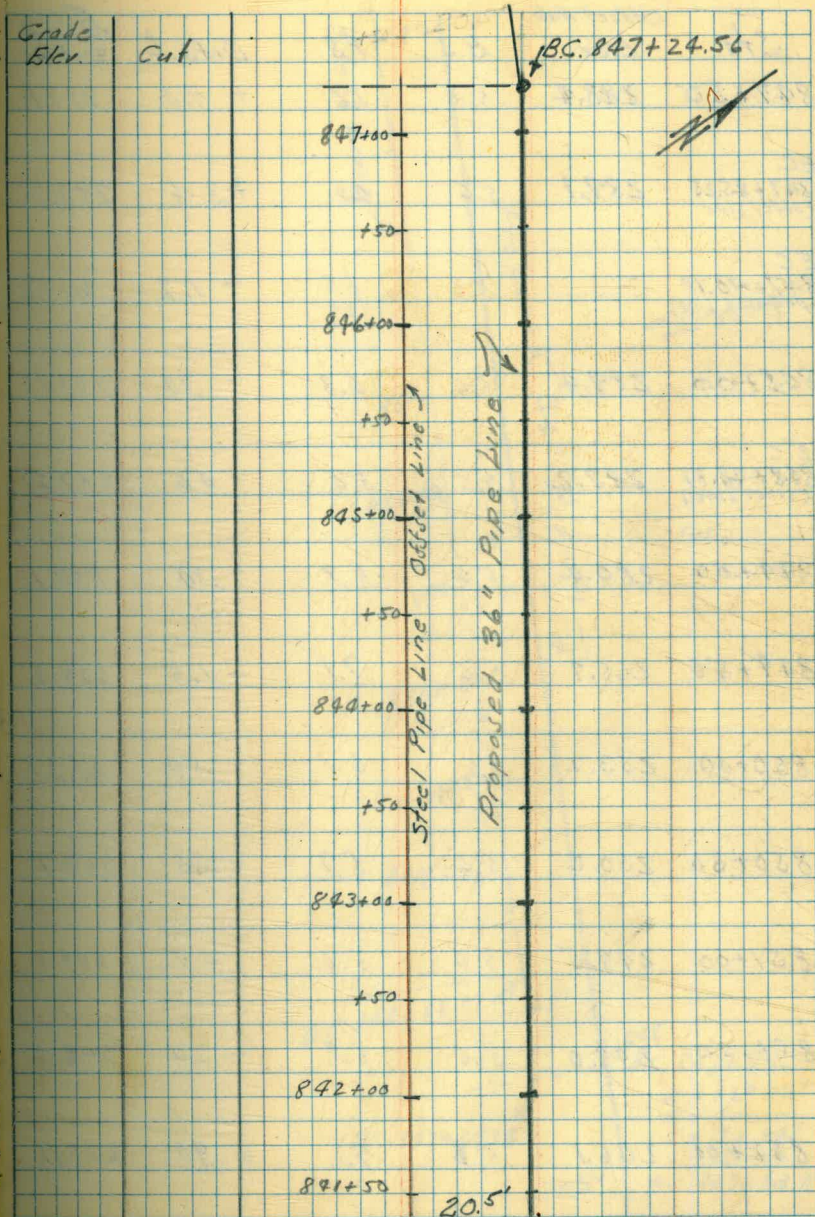 Grade
Elev.
Cut
B.C. 847+24.56
N
847+00
+50
846+00
+50
845+00
+50
844+00
+50
843+00
+50
842+00
841+50
Steel Pipe Line Offset Line
Proposed 36" Pipe Line
20.5'